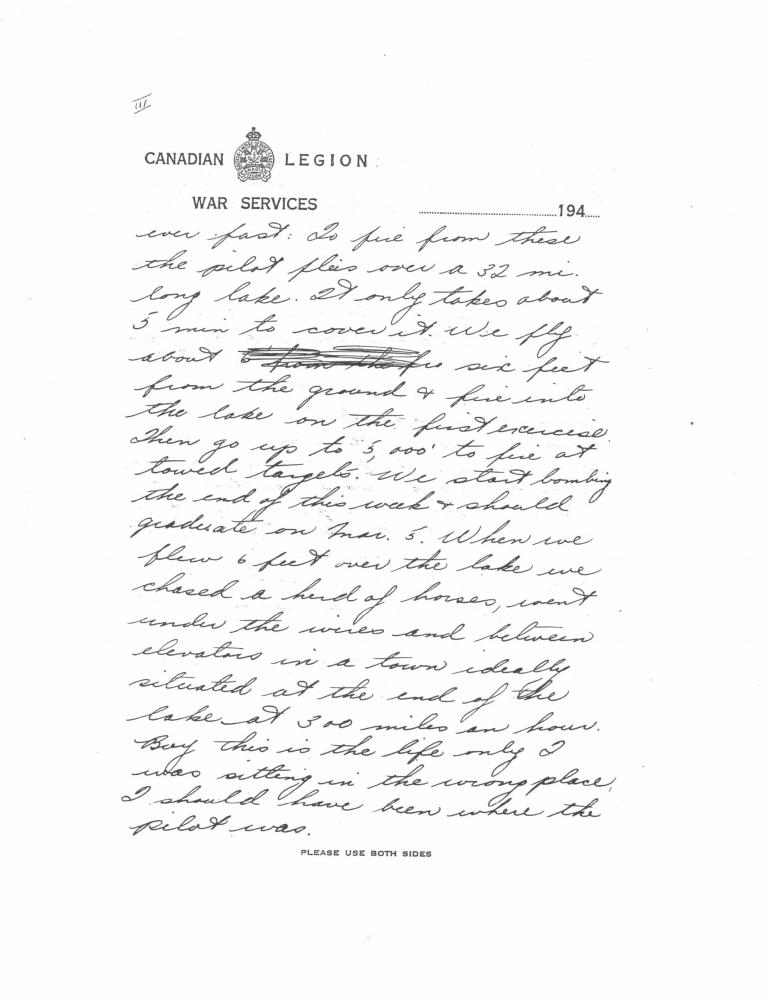 III
CANADIAN LEGION
WAR SERVICES
194
ever fast: To fire from these
the pilot flies over a 32 mi.
long lake. It only takes about
5 min to cover it. We fly
about 6 from the six feet
from the ground & fire into
the lake on the first exercise.
Then go up to 5,000' to fire at
towed targets. We start bombing
the end of this week & should
graduate on Mar. 5. When we
flew 6 feet over the lake we
chased a herd of horses, went
under the wires and between
elevators in a town ideally
situated at the end of the
lake at 300 miles an hour.
Boy this is the life only I
was sitting in the wrong place,
I should have been where the
pilot was.
PLEASE USE BOTH SIDES